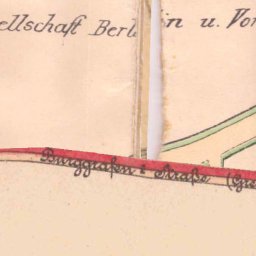 ellschaft Berlin u. Vor
Burggrafen-Straße (Gu